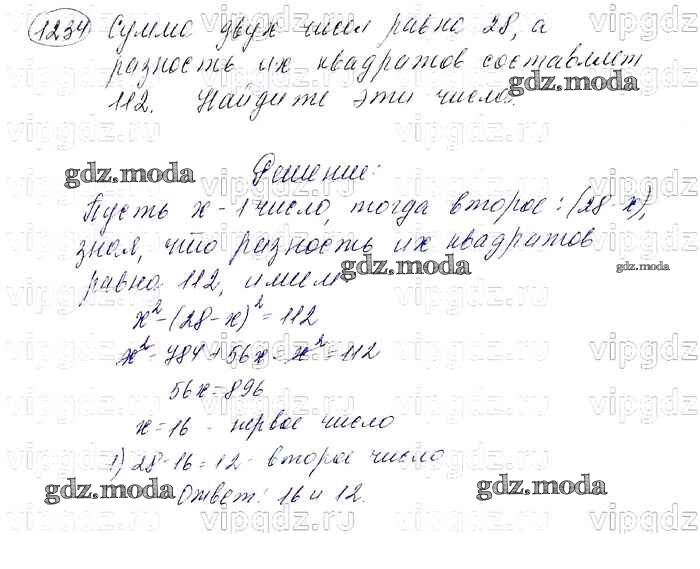 1234 Сумма двух чисел равна 28, а
разность их квадратов составляет
112. Найдите эти числа.
gdz.moda
gdz.moda
Решение:
Пусть x - 1 число, тогда второе: (28-x),
зная, что разность их квадратов
равна 112, имеем:
gdz.moda
gdz.moda
x² - (28-x)² = 112
x² - 784 + 56x - x² = 112
56x = 896
x = 16 - первое число
1) 28-16 = 12 - второе число
Ответ: 16 и 12.
gdz.moda
gdz.moda
vipgdz.ru